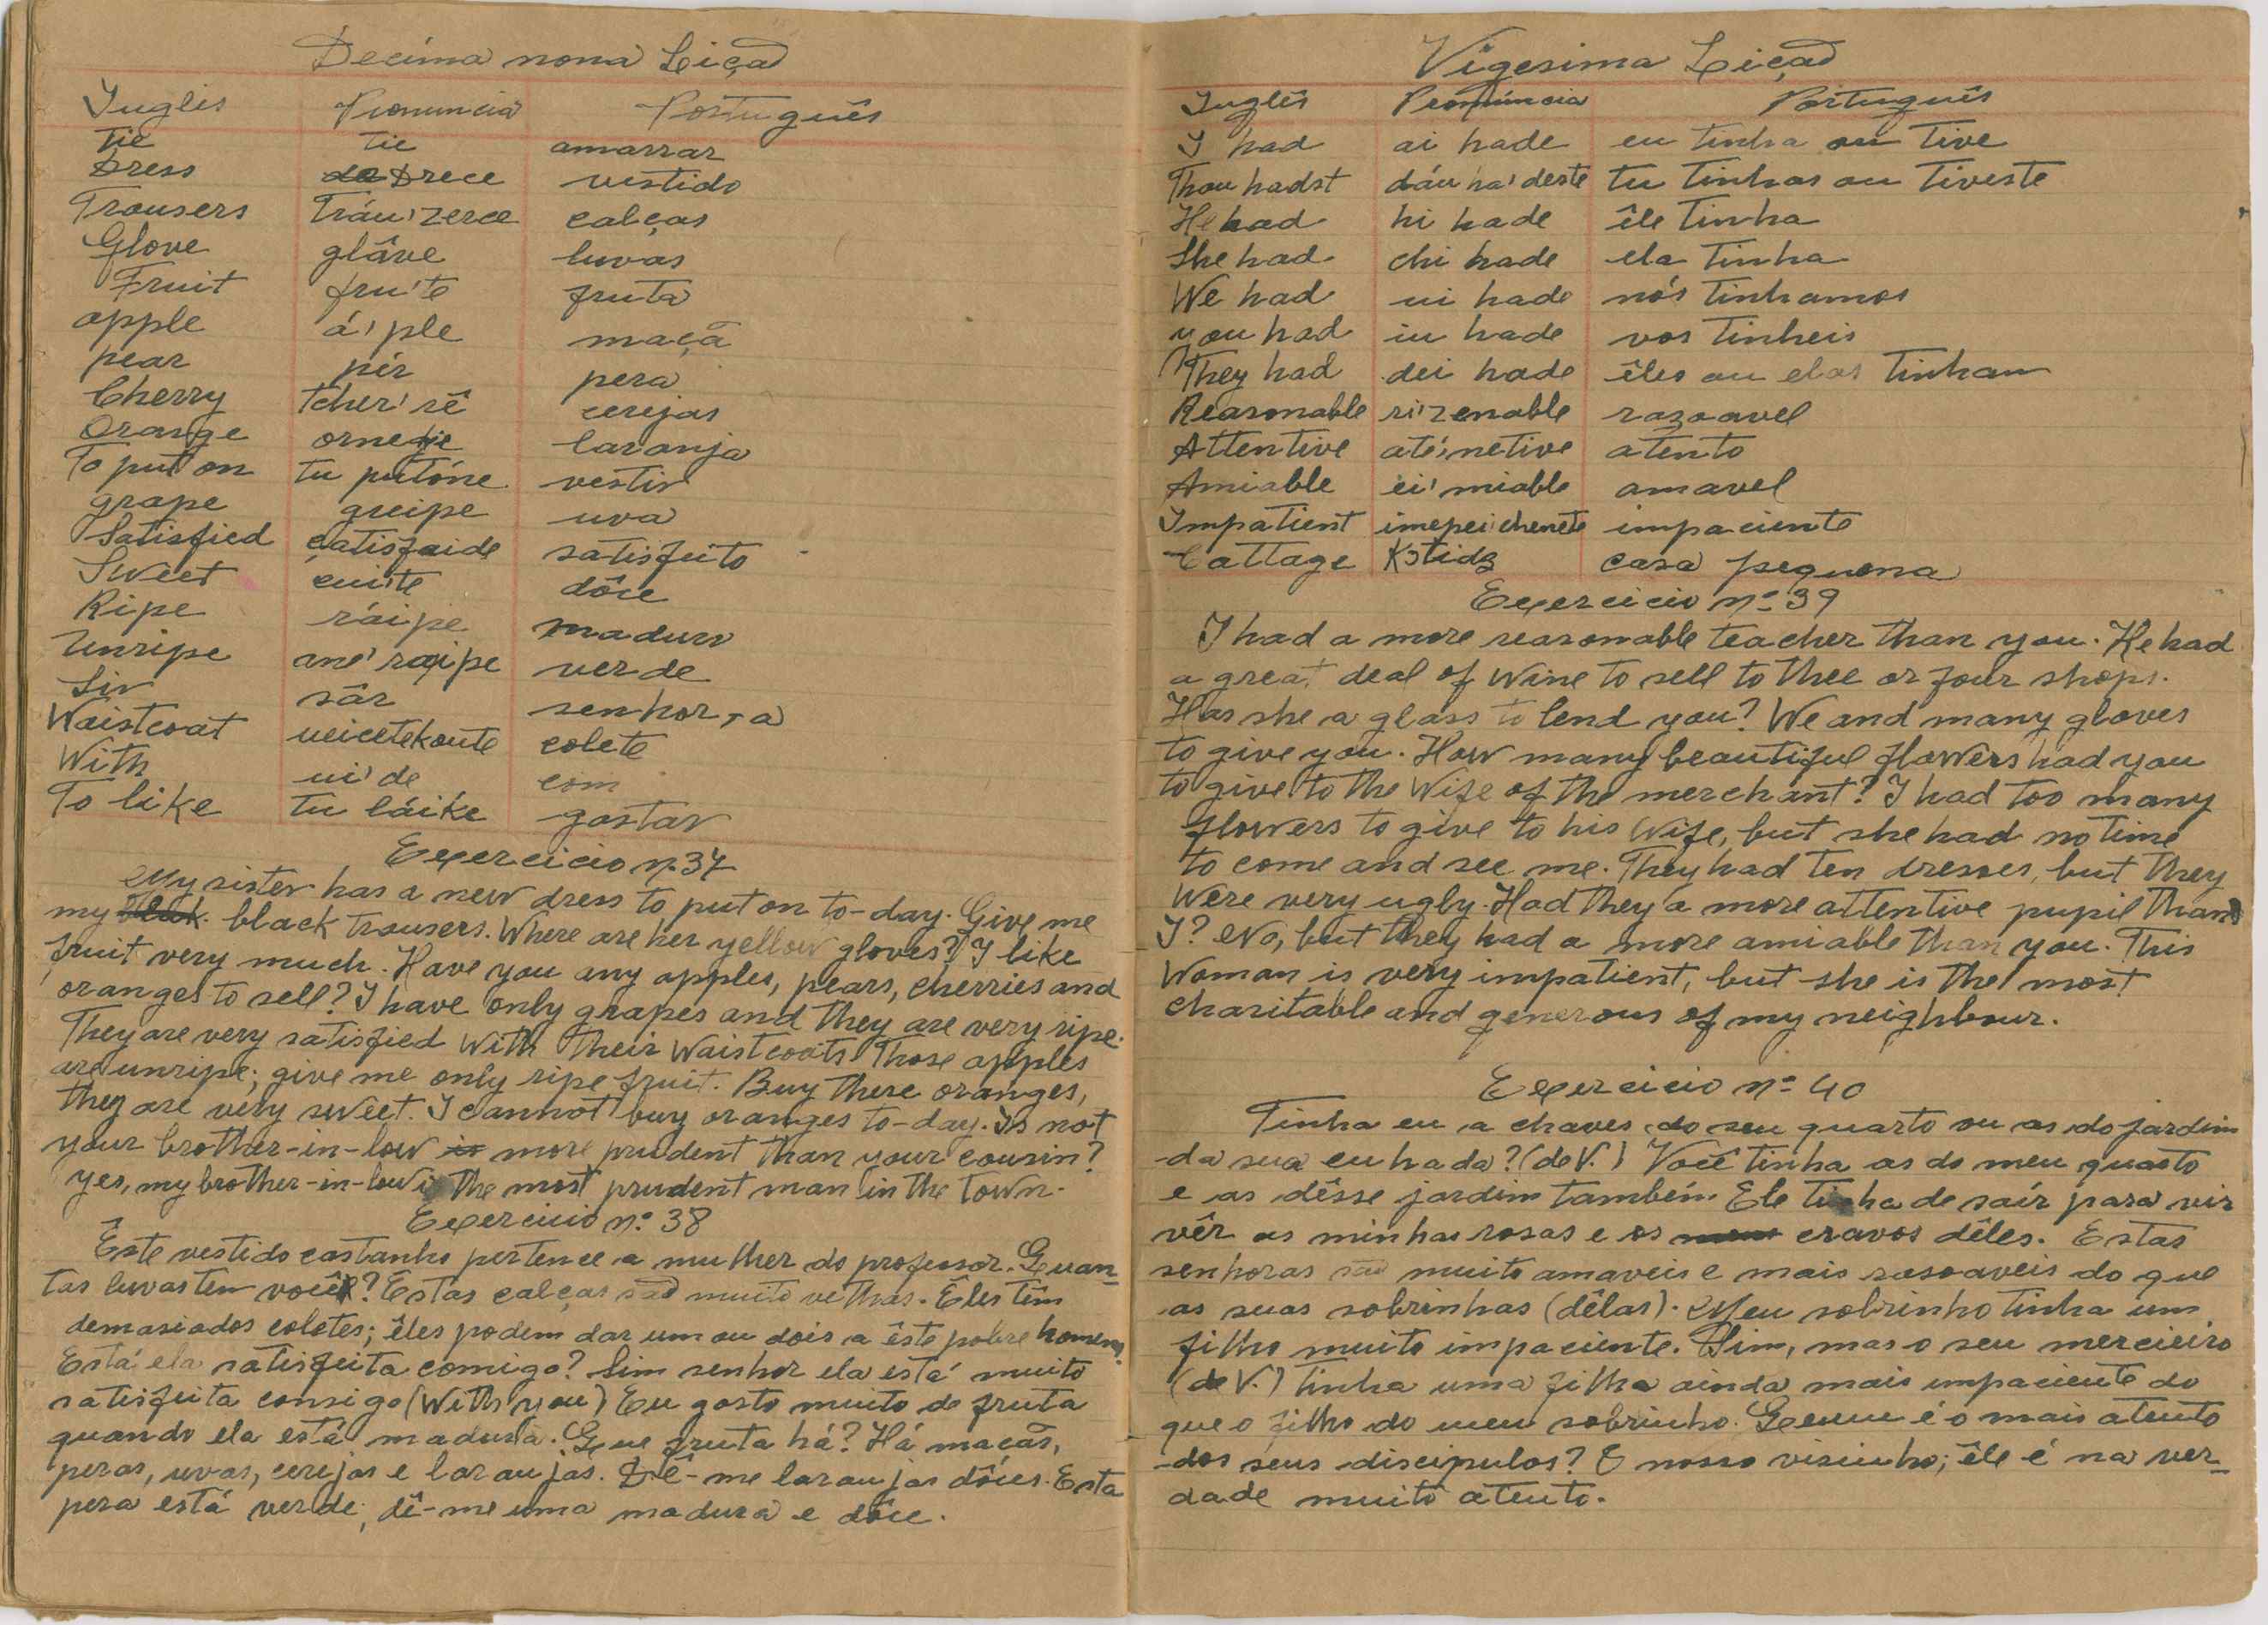 Decima nona Lição
Inglês Pronuncia Português
Tie tie amarrar
Dress Drece vestido
Trousers Tráu'zerce calças
Glove glâve luvas
Fruit fru'te fruta
apple á'ple maçã
pear pér pera
Cherry tcher'rê cerejas
Orange ornedje laranja
To put on tu putóne vestir
grape gueipe uva
Satisfied çatisfaide satisfeito
Sweet çui'te dôce
Ripe ráipe maduro
Unripe ane'raipe verde
Sir sâr senhor, a
Waistcoat ueicetekoute colete
With ui'de com
To like tu láike gostar
Exercicio nº 37
My sister has a new dress to put on to-day. Give me
my black trousers. Where are her yellow gloves? I like
fruit very much. Have you any apples, pears, cherries and
oranges to sell? I have only grapes and they are very ripe.
They are very satisfied with their waistcoats. Those apples
are unripe; give me only ripe fruit. Buy there oranges,
they are very sweet. I cannot buy oranges to-day. Is not
your brother-in-low more prudent than your cousin?
yes, my brother-in-low is the most prudent man in the town.
Exercicio nº 38
Êste vestido castanho pertence a mulher do professor. Quan-
tas luvas tem você? Estas calças são muito velhas. Êles têm
demasiados coletes; êles podem dar um ou dois a êste pobre homem.
Está ela satisfeita comigo? Sim senhor ela está muito
satisfeita consigo (with you) Eu gosto muito de fruta
quando ela está madura. Que fruta há? Há maçãs,
peras, uvas, cerejas e laranjas. Dê-me laranjas dôces. Esta
pera está verde, dê-me uma madura e dôce.
Vigesima Lição
Inglês Pronúncia Português
I had ai hade eu tinha ou tive
Thou hadst dáu ha'deste tu tinhas ou tiveste
He had hi hade êle tinha
She had chi hade ela tinha
We had ui hade nós tinhamos
you had iu hade vos tinheis
They had dei hade êles ou elas tinham
Reasonable ri'zenable razoavel
Attentive até'netive atento
Amiable êi'miable amavel
Impatient imepei'chenete impaciente
Cattage Kɔtidz casa pequena
Exercicio nº 39
I had a more reasonable teacher than you. He had
a great deal of wine to sell to thee or four shops.
Has she a glass to lend you? We and many gloves
to give you. How many beautiful flowers had you
to give to the wife of the merchant? I had too many
flowers to give to his wife, but she had no time
to come and see me. They had ten dresses, but they
were very ugly. Had they a more attentive pupil than
I? No, but they had a more amiable than you. This
woman is very impatient, but she is the most
charitable and generous of my neighbour.
Exercicio nº 40
Tinha eu a chaves do seu quarto ou as do jardim
da sua cunhada? (de V.) Você tinha as do meu quarto
e as dêsse jardim também. Ele tinha de saír para vir
vêr as minhas rosas e os cravos dêles. Estas
senhoras são muito amaveis e mais rasoaveis do que
as suas sobrinhas (dêlas). Meu sobrinho tinha um
filho muito impaciente. Sim, mas o seu mercieiro
(de V.) tinha uma filha ainda mais impaciente do
que o filho do meu sobrinho. Quem é o mais atento
dos seus discipulos? O nosso visinho; êle é na ver-
dade muito atento.